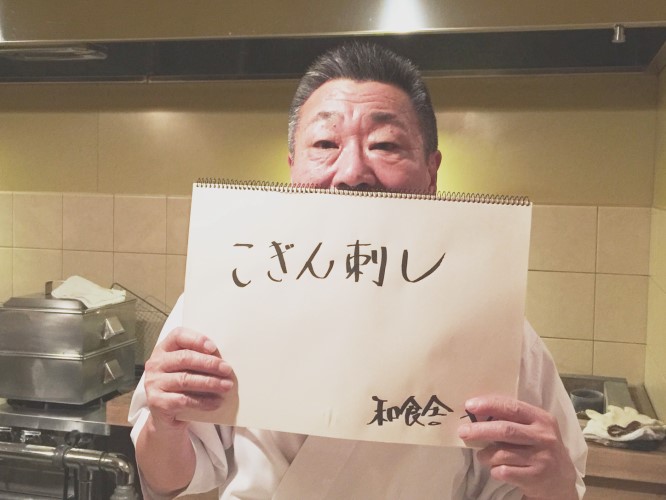 こぎん刺し
和食舎